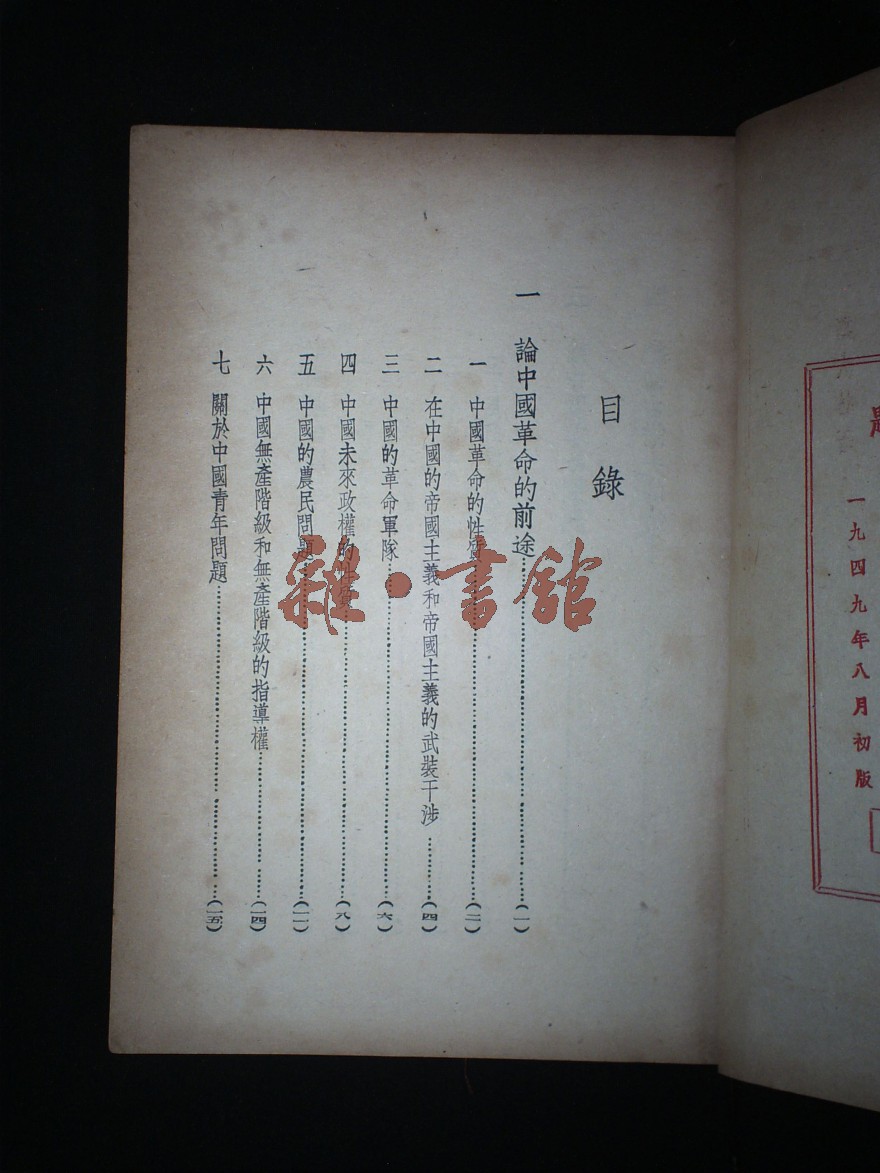 一九四九年八月初版
目錄
一 論中國革命的前途……(一)
一 中國革命的性質……(二)
二 在中國的帝國主義和帝國主義的武裝干涉……(四)
三 中國的革命軍隊……(六)
四 中國未來政權的性質……(八)
五 中國的農民問題……(一一)
六 中國無產階級和無產階級的指導權……(一四)
七 關於中國青年問題……(一五)
雜·書館